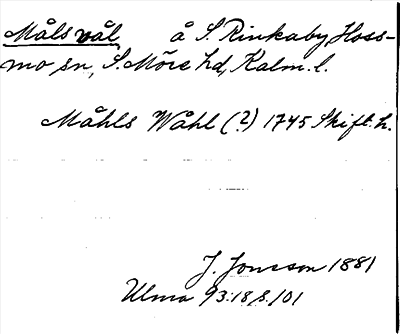 Måls vål å S. Rinkaby Hoss-
mo sn, S. Möre hd, Kalm. l.
Måhls Wåhl (?) 1745 Skift. h.
J. Jonsson 1881
Ulma 93:18, s. 101